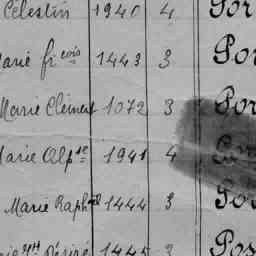 Célestin 1940 4 Por
Marie frcois 1443 3 Por
Marie Clément 1072 3 Por
Marie Alpse 1941 4
Marie Raphël 1444 3 Pos
Désiré 1445 3 Pos